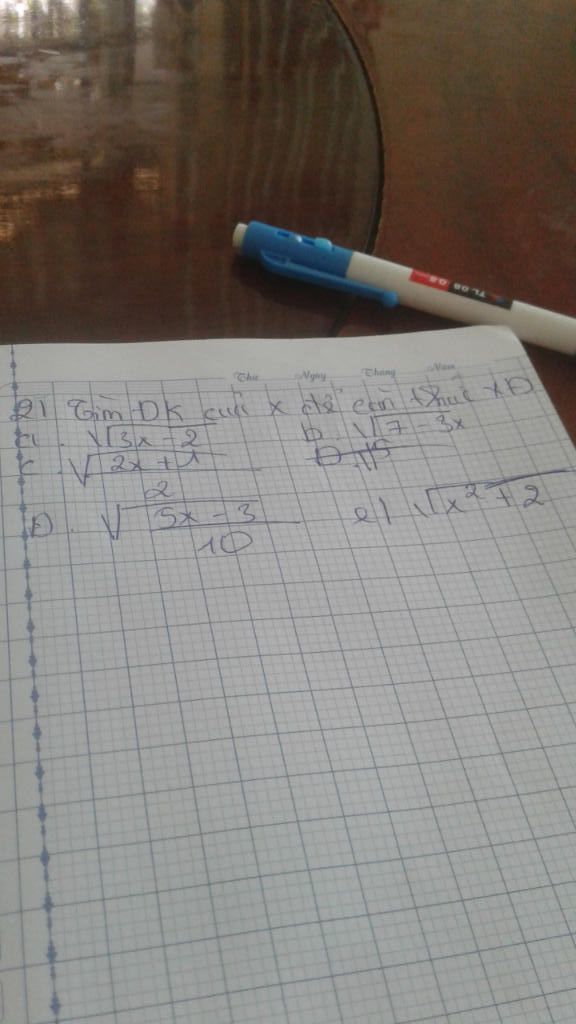 TL 08 0.8
Thứ Ngày Tháng Năm
2) Tìm ĐK của x để căn thức XĐ
a. √3x - 2 b. √7 - 3x
c. √2x + 1
2
D. √5x - 3 e) √x² + 2
10